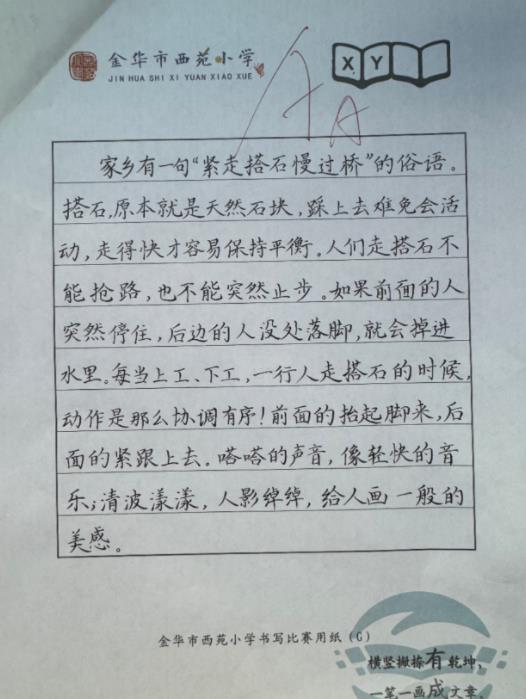 金华市西苑小学
JIN HUA SHI XI YUAN XIAO XUE
XY
A
家乡有一句“紧走搭石慢过桥”的俗语。
搭石,原本就是天然石块,踩上去难免会活
动,走得快才容易保持平衡。人们走搭石不
能抢路,也不能突然止步。如果前面的人
突然停住,后边的人没处落脚,就会掉进
水里。每当上工、下工,一行人走搭石的时候,
动作是那么协调有序!前面的抬起脚来,后
面的紧跟上去。嗒嗒的声音,像轻快的音
乐;清波漾漾,人影绰绰,给人画一般的
美感。
金华市西苑小学书写比赛用纸(G)
横竖撇捺有乾坤,
一笔一画成文章。